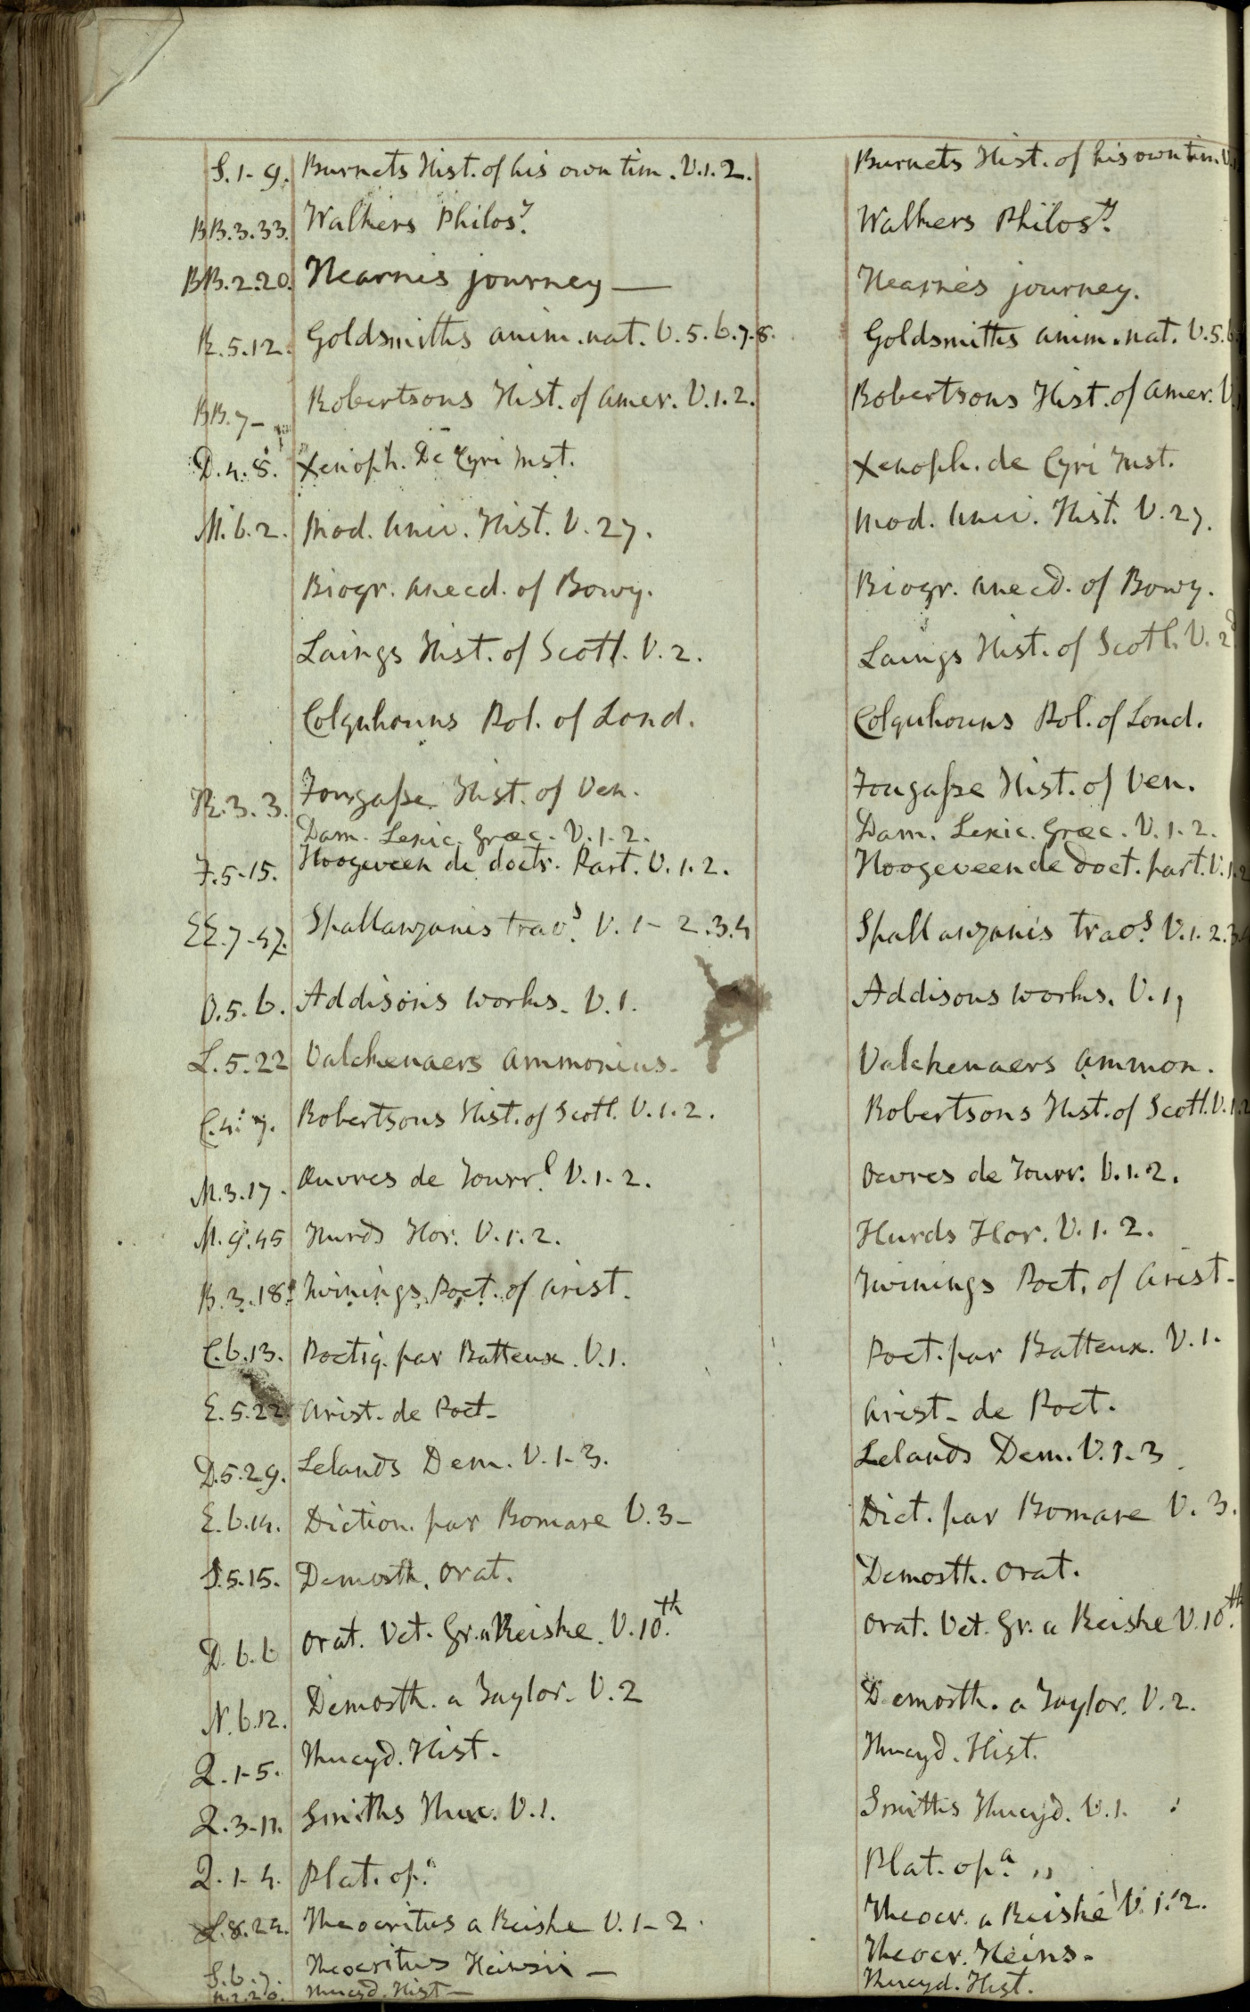 S.1-9. Burnets Hist. of his own tim. V.1.2. Burnets Hist. of his own tim. V.
BB.3.33. Walkers Philosy. Walkers Philosy.
BB.2.20. Hearnes journey — Hearnes journey.
R.5.12. Goldsmiths anim. nat. V.5.6.7.8. Goldsmiths anim. nat. V.5.6
BB.7- Robertsons Hist. of Amer. V.1.2. Robertsons Hist. of Amer. V.
D.4.8. Xenoph. De Cyri Inst. Xenoph. de Cyri Inst.
M.6.2. Mod. Univ. Hist. V.27. Mod. Univ. Hist. V.27.
Biogr. Anecd. of Bowy. Biogr. Anecd. of Bowy.
Laings Hist. of Scotl. V.2. Laings Hist. of Scotl. V.2
Colquhouns Pol. of Lond. Colquhouns Pol. of Lond.
R.3.3. Fougasse Hist. of Ven. Fougasse Hist. of Ven.
Dam. Lexic. Græc. V.1.2. Dam. Lexic. Græc. V.1.2.
F.5.15. Hoogeveen de doctr. Part. V.1.2. Hoogeveen de Doct. part. V.1.2
EE.7-47. Spallanzanis travs. V.1-2.3.4 Spallanzanis travs. V.1.2.3.4
O.5.6. Addisons works. V.1. Addisons works. V.1,
L.5.22 Valckenaers Ammonius. Valckenaers Ammon.
C.4.7. Robertsons Hist. of Scotl. V.1.2. Robertsons Hist. of Scotl. V.1.2
M.3.17. Œuvres de Tourrl. V.1-2. Oevres de Tourr: V.1.2.
M.9.45 Hurds Hor. V.1.2. Hurds Hor. V.1.2.
B.3.18. Twinings Poet. of Arist. Twinings Poet. of Arist-
C.6.13. Poetiq. par Batteux. V.1. Poet. par Batteux. V.1.
E.5.22 Arist. de Poet- Arist- de Poet.
D.5.29. Lelands Dem. V.1-3. Lelands Dem. V.1-3
E.6.14. Diction. par Bomare V.3- Dict. par Bomare V.3.
S.5.15. Demosth. Orat. Demosth. Orat.
D.6.6 Orat. Vet. Gr. a Reiske. V.10th. Orat. Vet. Gr. a Reiske V.10th.
N.6.12. Demosth. a Taylor. V.2 Demosth. a Taylor. V.2.
Q.1-5. Thucyd. Hist- Thucyd. Hist.
Q.3-11. Smiths Thuc. V.1. Smiths Thucyd. V.1.
Q.1-4. Plat. opa. Plat. opa. ,,
L.8.24. Theocritus a Reiske V.1-2. Theocr. a Reiske V.1.2.
S.6.7. Theocritus Heinsii — Theocr. Heins-
Thucyd. Hist — Thucyd. Hist.